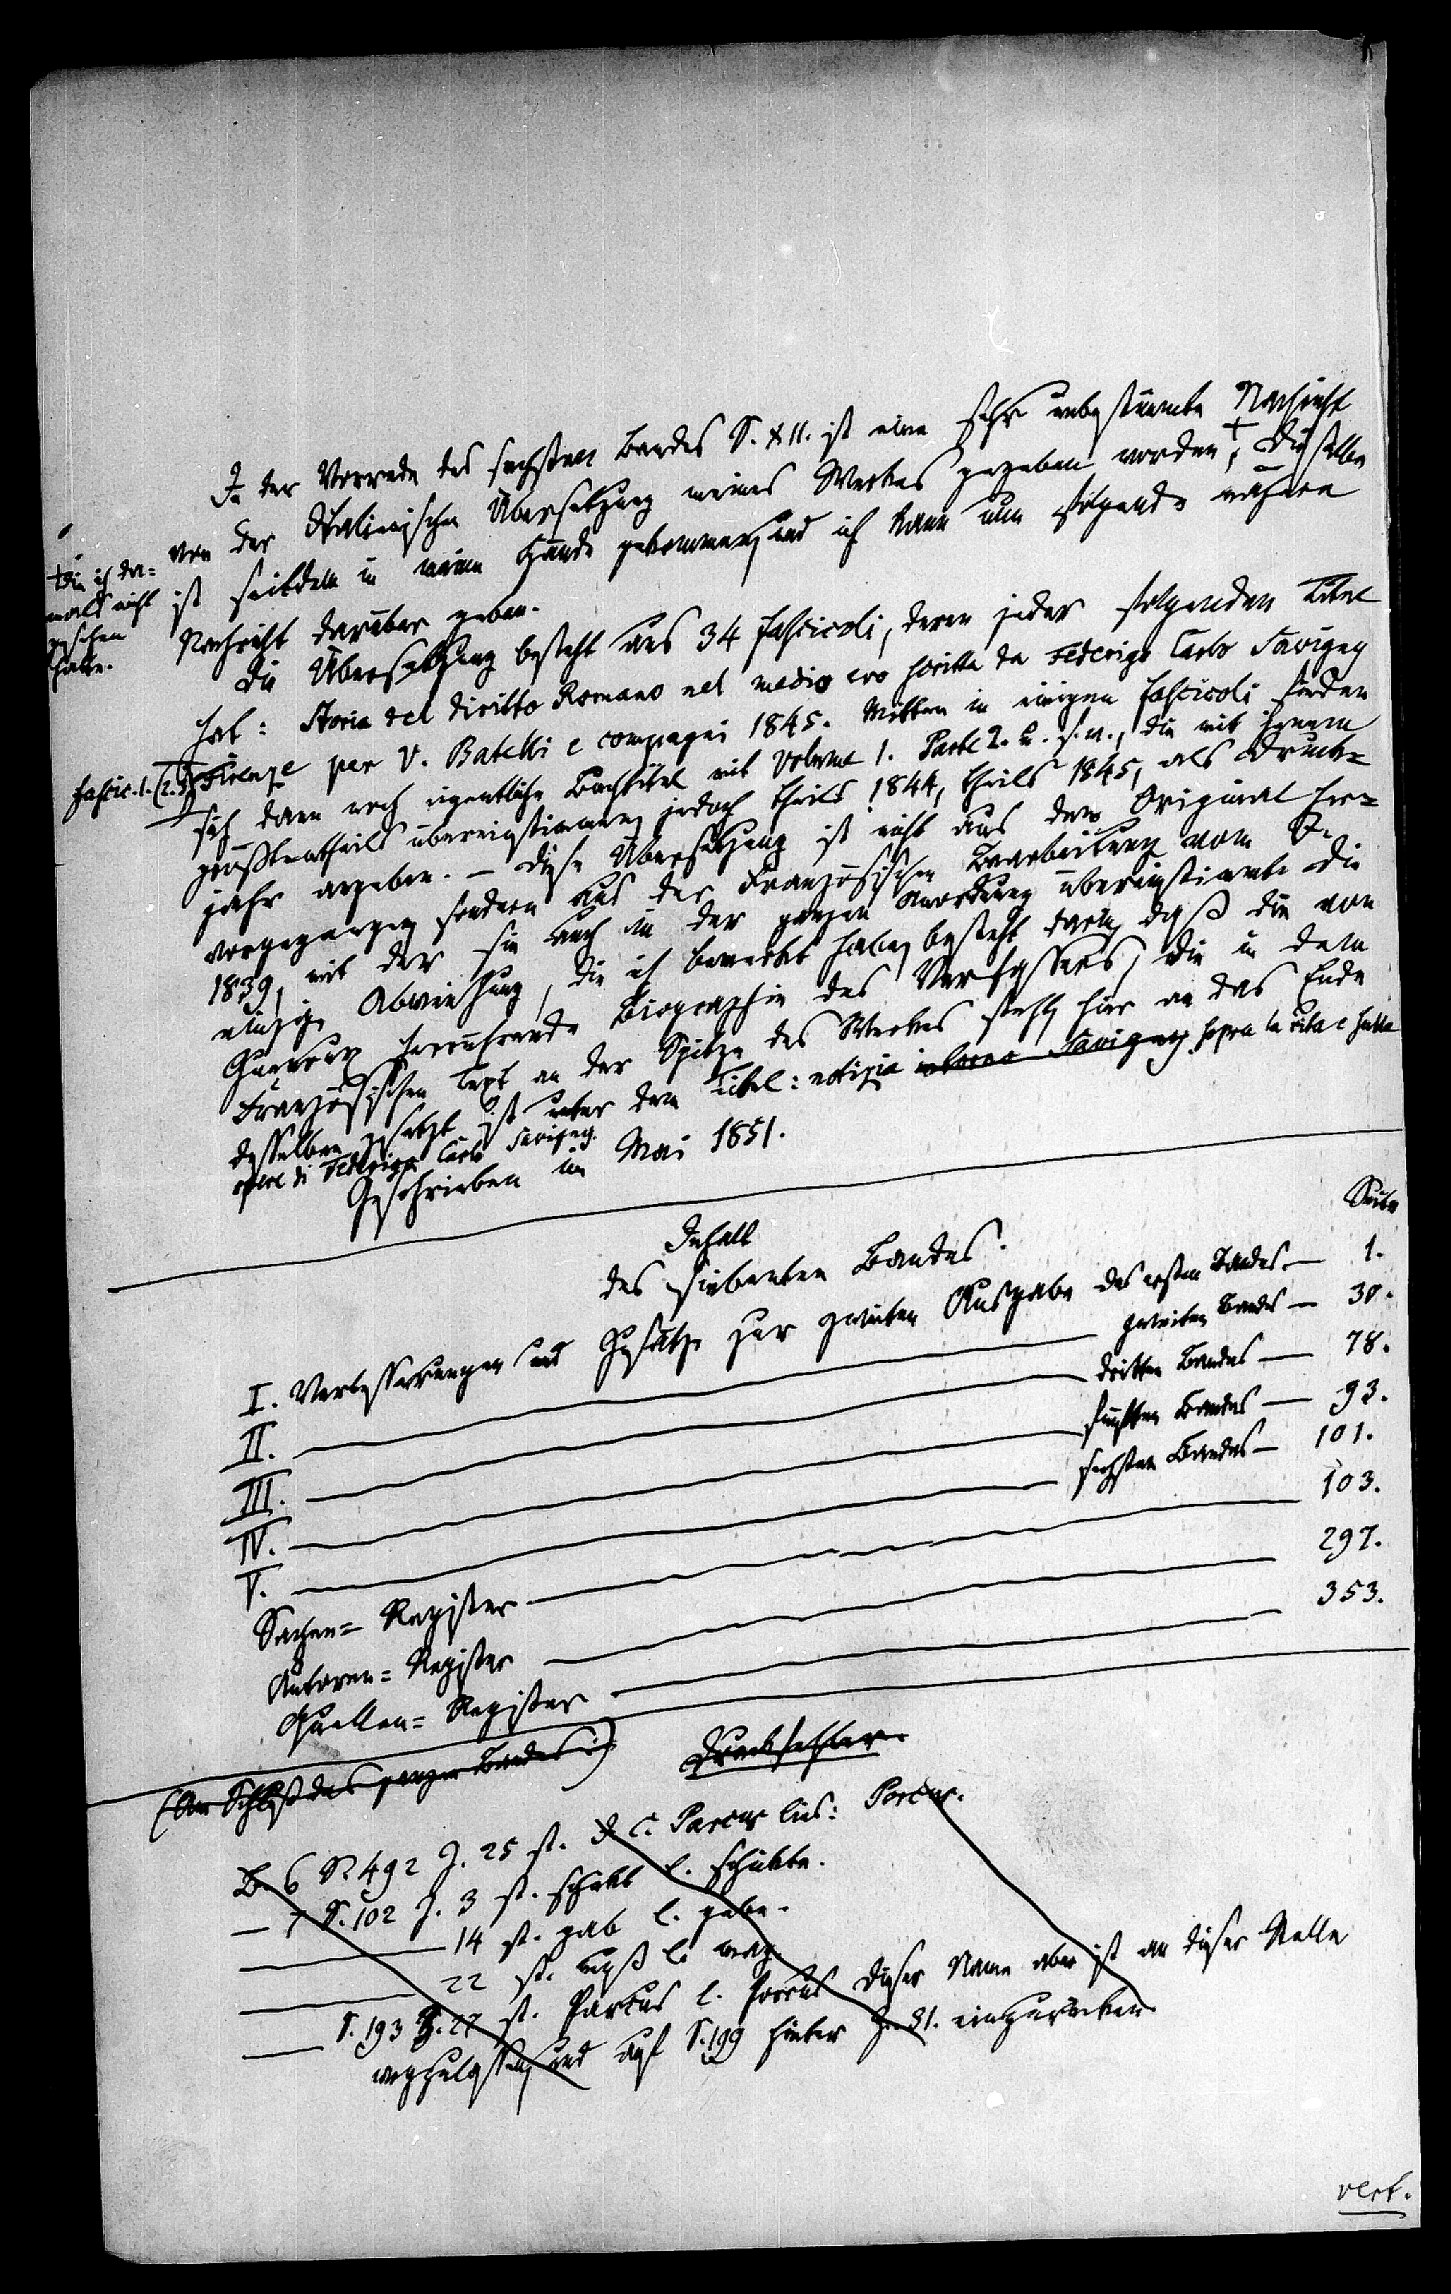 In der Vorrede des sechsten Bandes S. XII. ist eine sehr unbestimmte Nachricht
von der Italienischen Übersetzung meines Werkes gegeben worden, + Dieselbe
ist seitdem in meine Hände gekommen, und ich kann nun folgende nähere
Nachricht darüber geben.
+ die ich da=
mals nicht
gesehen
hatte.
Die Übersetzung besteht aus 34 fascicoli, deren jeder folgenden Titel
hat: Storia del diritto Romano nel medio evo scritta da Federigo Carlo Savigny
fascic. 1. (2. 3.) Firenze per V. Batelli e compagni 1845. Mitten in einigen fascicoli finden
sich dann noch eigentliche Buchtitel mit Volume 1. Parte 2. u. s. w., die mit jenem
größtentheils übereinstimmen, jedoch theils 1844, theils 1845, als Druck=
jahr angeben. – Diese Übersetzung ist nicht aus dem Original her=
vorgegangen, sondern aus der Französischen Bearbeitung vom J.
1839, mit der sie auch in der ganzen Anordnung übereinstimmt. Die
einzige Abweichung, die ich bemerkt habe, besteht darin, daß die von
Guenoux herrührende Biographie des Verfassers, die in dem
Französischen Text an der Spitze des Werkes steht, hier an das Ende
desselben gesetzt ist unter dem Titel: notizia intorno Savigny sopra la vita e sulle
opere di Federigo Carlo Savigny.
Geschrieben im Mai 1851.
Inhalt
des siebenten Bandes.
Seite
I. Verbesserungen und Zusätze zur zweiten Ausgabe des ersten Bandes — 1.
II. — zweiten Bandes — 30.
III. — dritten Bandes — 78.
IV. — fünften Bandes — 93.
V. — sechsten Bandes — 101.
Sachen=Register — 103.
Autoren=Register — 297.
Quellen=Register — 353.
(Am Schluß des ganzen Bandes:)
Druckfehler
B. 6 S. 492 Z. 25 st. C. Parcus lies: Porcus.
— 7 S. 102 Z. 3 st. l. schickte.
— 14 st. gab l. gebe.
— 22 st. l.
— S. 193 Z. 27 st. Parcus l. Porcus Dieser Name aber ist an dieser Stelle
wegzulassen, und auf S. 199 hinter Z. 31. einzurücken
vert.